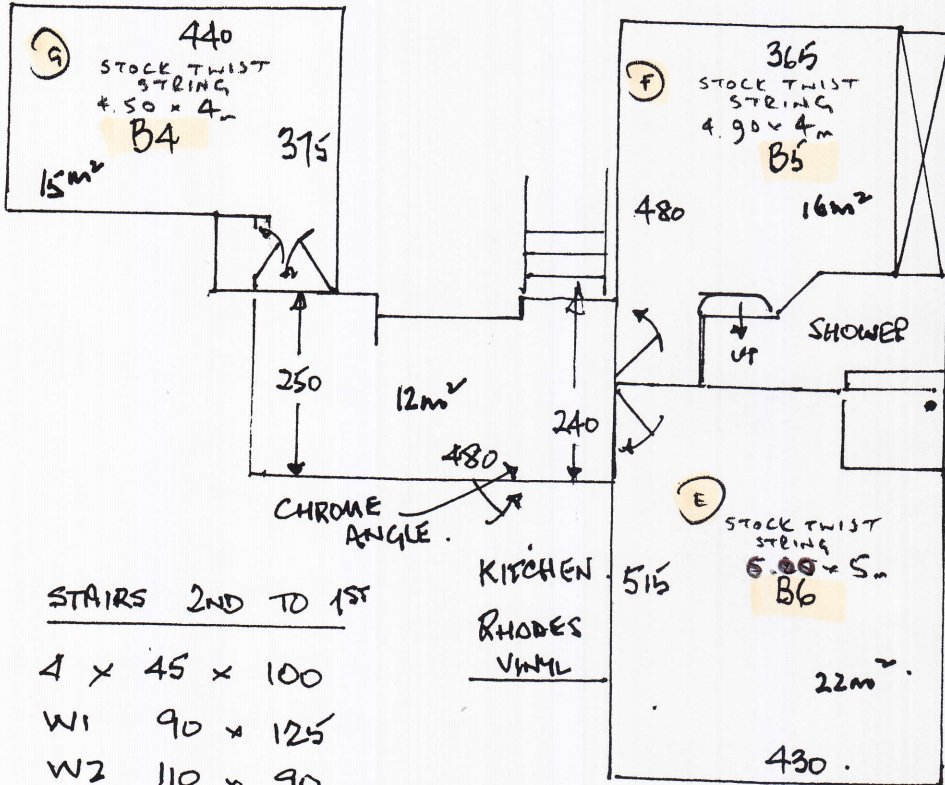 G
440
STOCK TWIST
STRING
4.50 x 4m
B4
375
15m²
F
365
STOCK TWIST
STRING
4.90 x 4m
B5
480
16m²
SHOWER
UP
250
12m²
240
480
CHROME
ANGLE.
E
STOCK TWIST
STRING
5m
B6
515
22m².
430.
KITCHEN
RHODES
VINYL
STAIRS 2ND TO 1ST
4 x 45 x 100
W1 90 x 125
W2 110 x 90